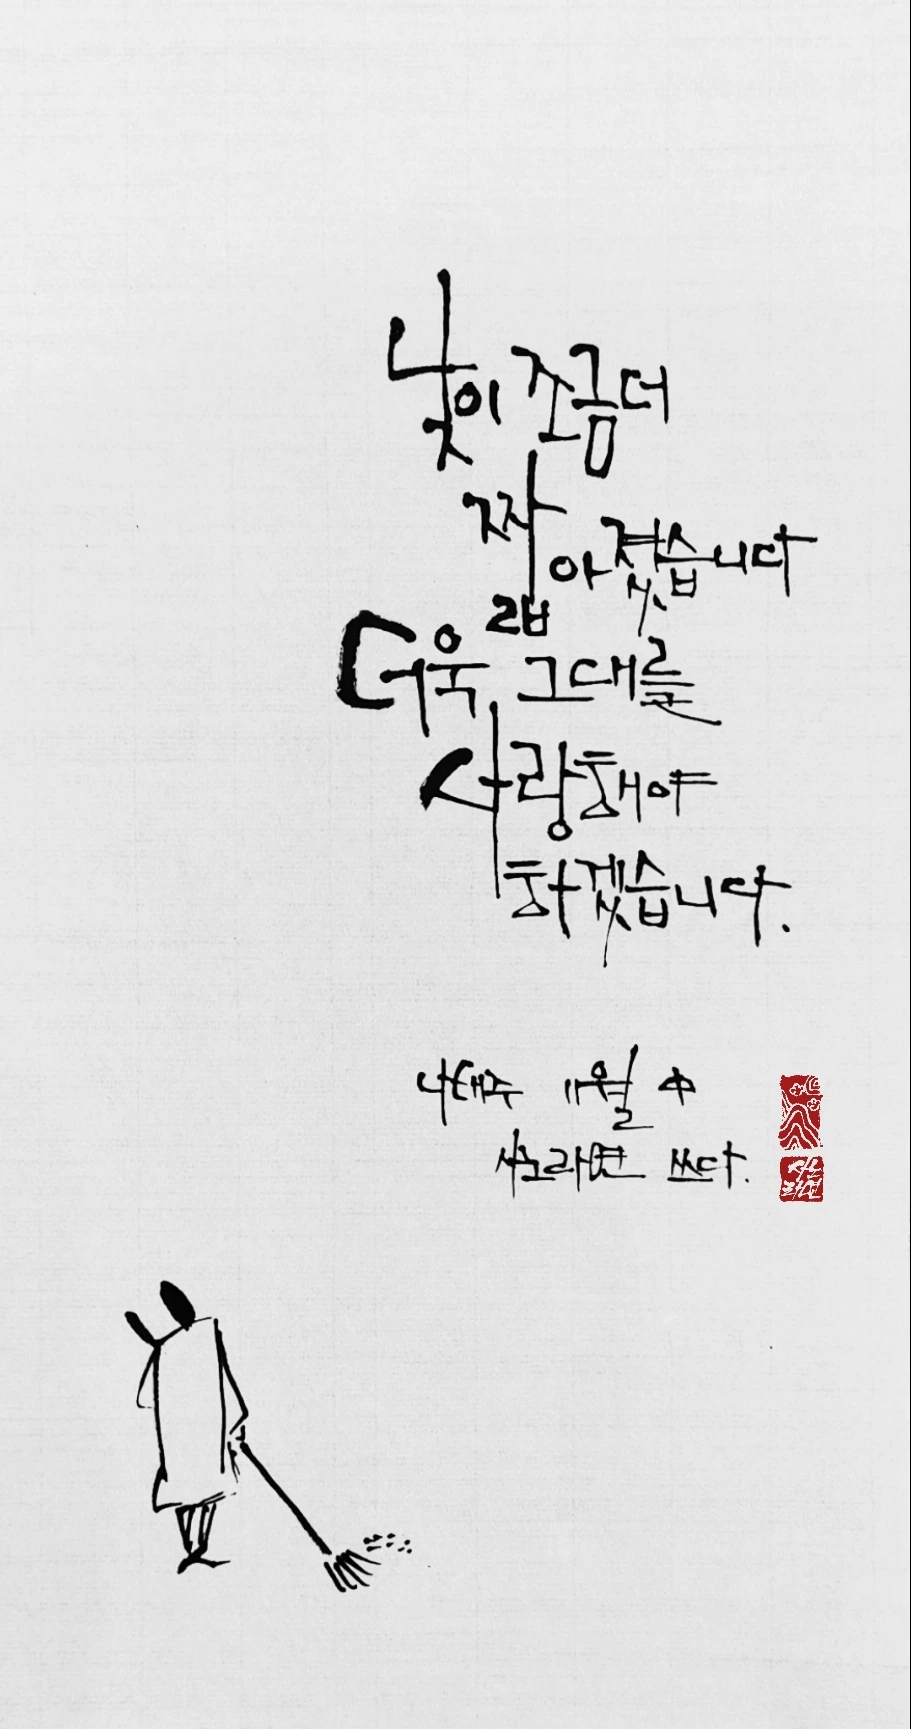 낮이 조금 더
짧아졌습니다
더욱 그대를
사랑해야
하겠습니다.
나태주 11월 中
산그라면 쓰다.